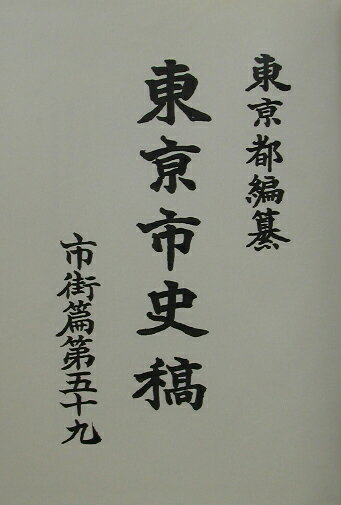 東京都編纂
東京市史稿
市街篇第五十九